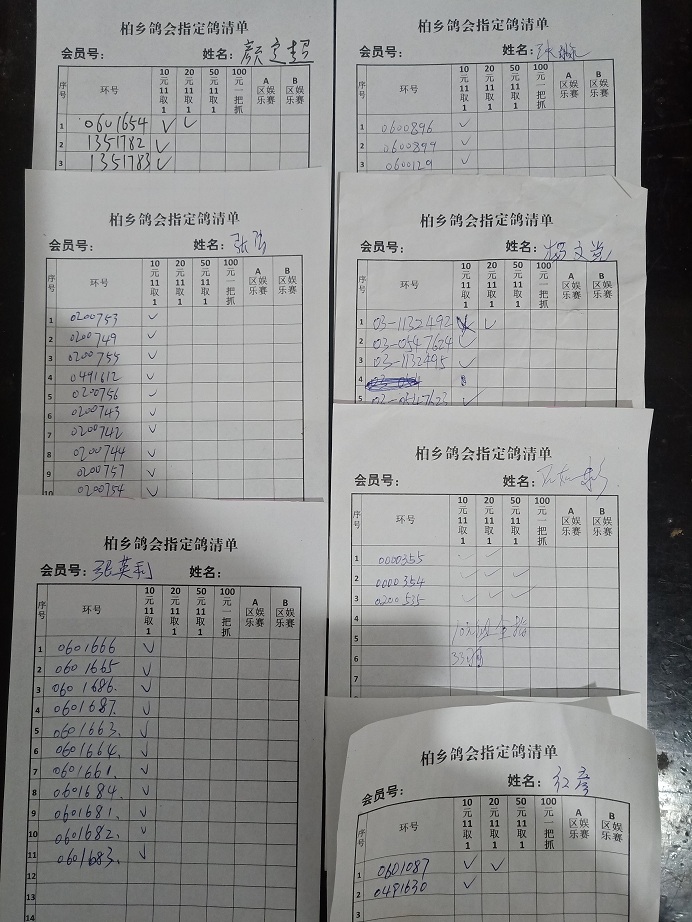 柏乡鸽会指定鸽清单
会员号： 姓名：颜定超
序号 环号 10元11取1 20元11取1 50元11取1 100元一把抓 A区娱乐赛 B区娱乐赛
1 0601654 ✓ ✓
2 1351782 ✓
3 1351783 ✓
柏乡鸽会指定鸽清单
会员号： 姓名：张
序号 环号 10元11取1 20元11取1 50元11取1 100元一把抓 A区娱乐赛 B区娱乐赛
1 0200753 ✓
2 0200749 ✓
3 0200755 ✓
4 0491612 ✓
5 0200756 ✓
6 0200743 ✓
7 0200742 ✓
8 0200744 ✓
9 0200757 ✓
10 0200754 ✓
柏乡鸽会指定鸽清单
会员号：张英利 姓名：
序号 环号 10元11取1 20元11取1 50元11取1 100元一把抓 A区娱乐赛 B区娱乐赛
1 0601666 ✓
2 0601665 ✓
3 0601686. ✓
4 0601687. ✓
5 0601663. ✓
6 0601664. ✓
7 0601661. ✓
8 0601684. ✓
9 0601681. ✓
10 0601682. ✓
11 0601683. ✓
12
13
14
柏乡鸽会指定鸽清单
会员号： 姓名：张
序号 环号 10元11取1 20元11取1 50元11取1 100元一把抓 A区娱乐赛 B区娱乐赛
1 0600896 ✓
2 0600899 ✓
3 0600129 ✓
柏乡鸽会指定鸽清单
会员号： 姓名：杨文党
序号 环号 10元11取1 20元11取1 50元11取1 100元一把抓 A区娱乐赛 B区娱乐赛
1 03-1132492 ✓ ✓
2 03-0547624 ✓
3 03-1132495 ✓
4
5 03-0547623 ✓
柏乡鸽会指定鸽清单
会员号： 姓名：
序号 环号 10元11取1 20元11取1 50元11取1 100元一把抓 A区娱乐赛 B区娱乐赛
1 0000355
2 0000354 ✓ ✓ ✓
3 0200535 ✓ ✓ ✓
4
5 10元 全指
6 33羽
柏乡鸽会指定鸽清单
会员号： 姓名：红彦
序号 环号 10元11取1 20元11取1 50元11取1 100元一把抓 A区娱乐赛 B区娱乐赛
1 0601087 ✓ ✓
2 0491630 ✓
3